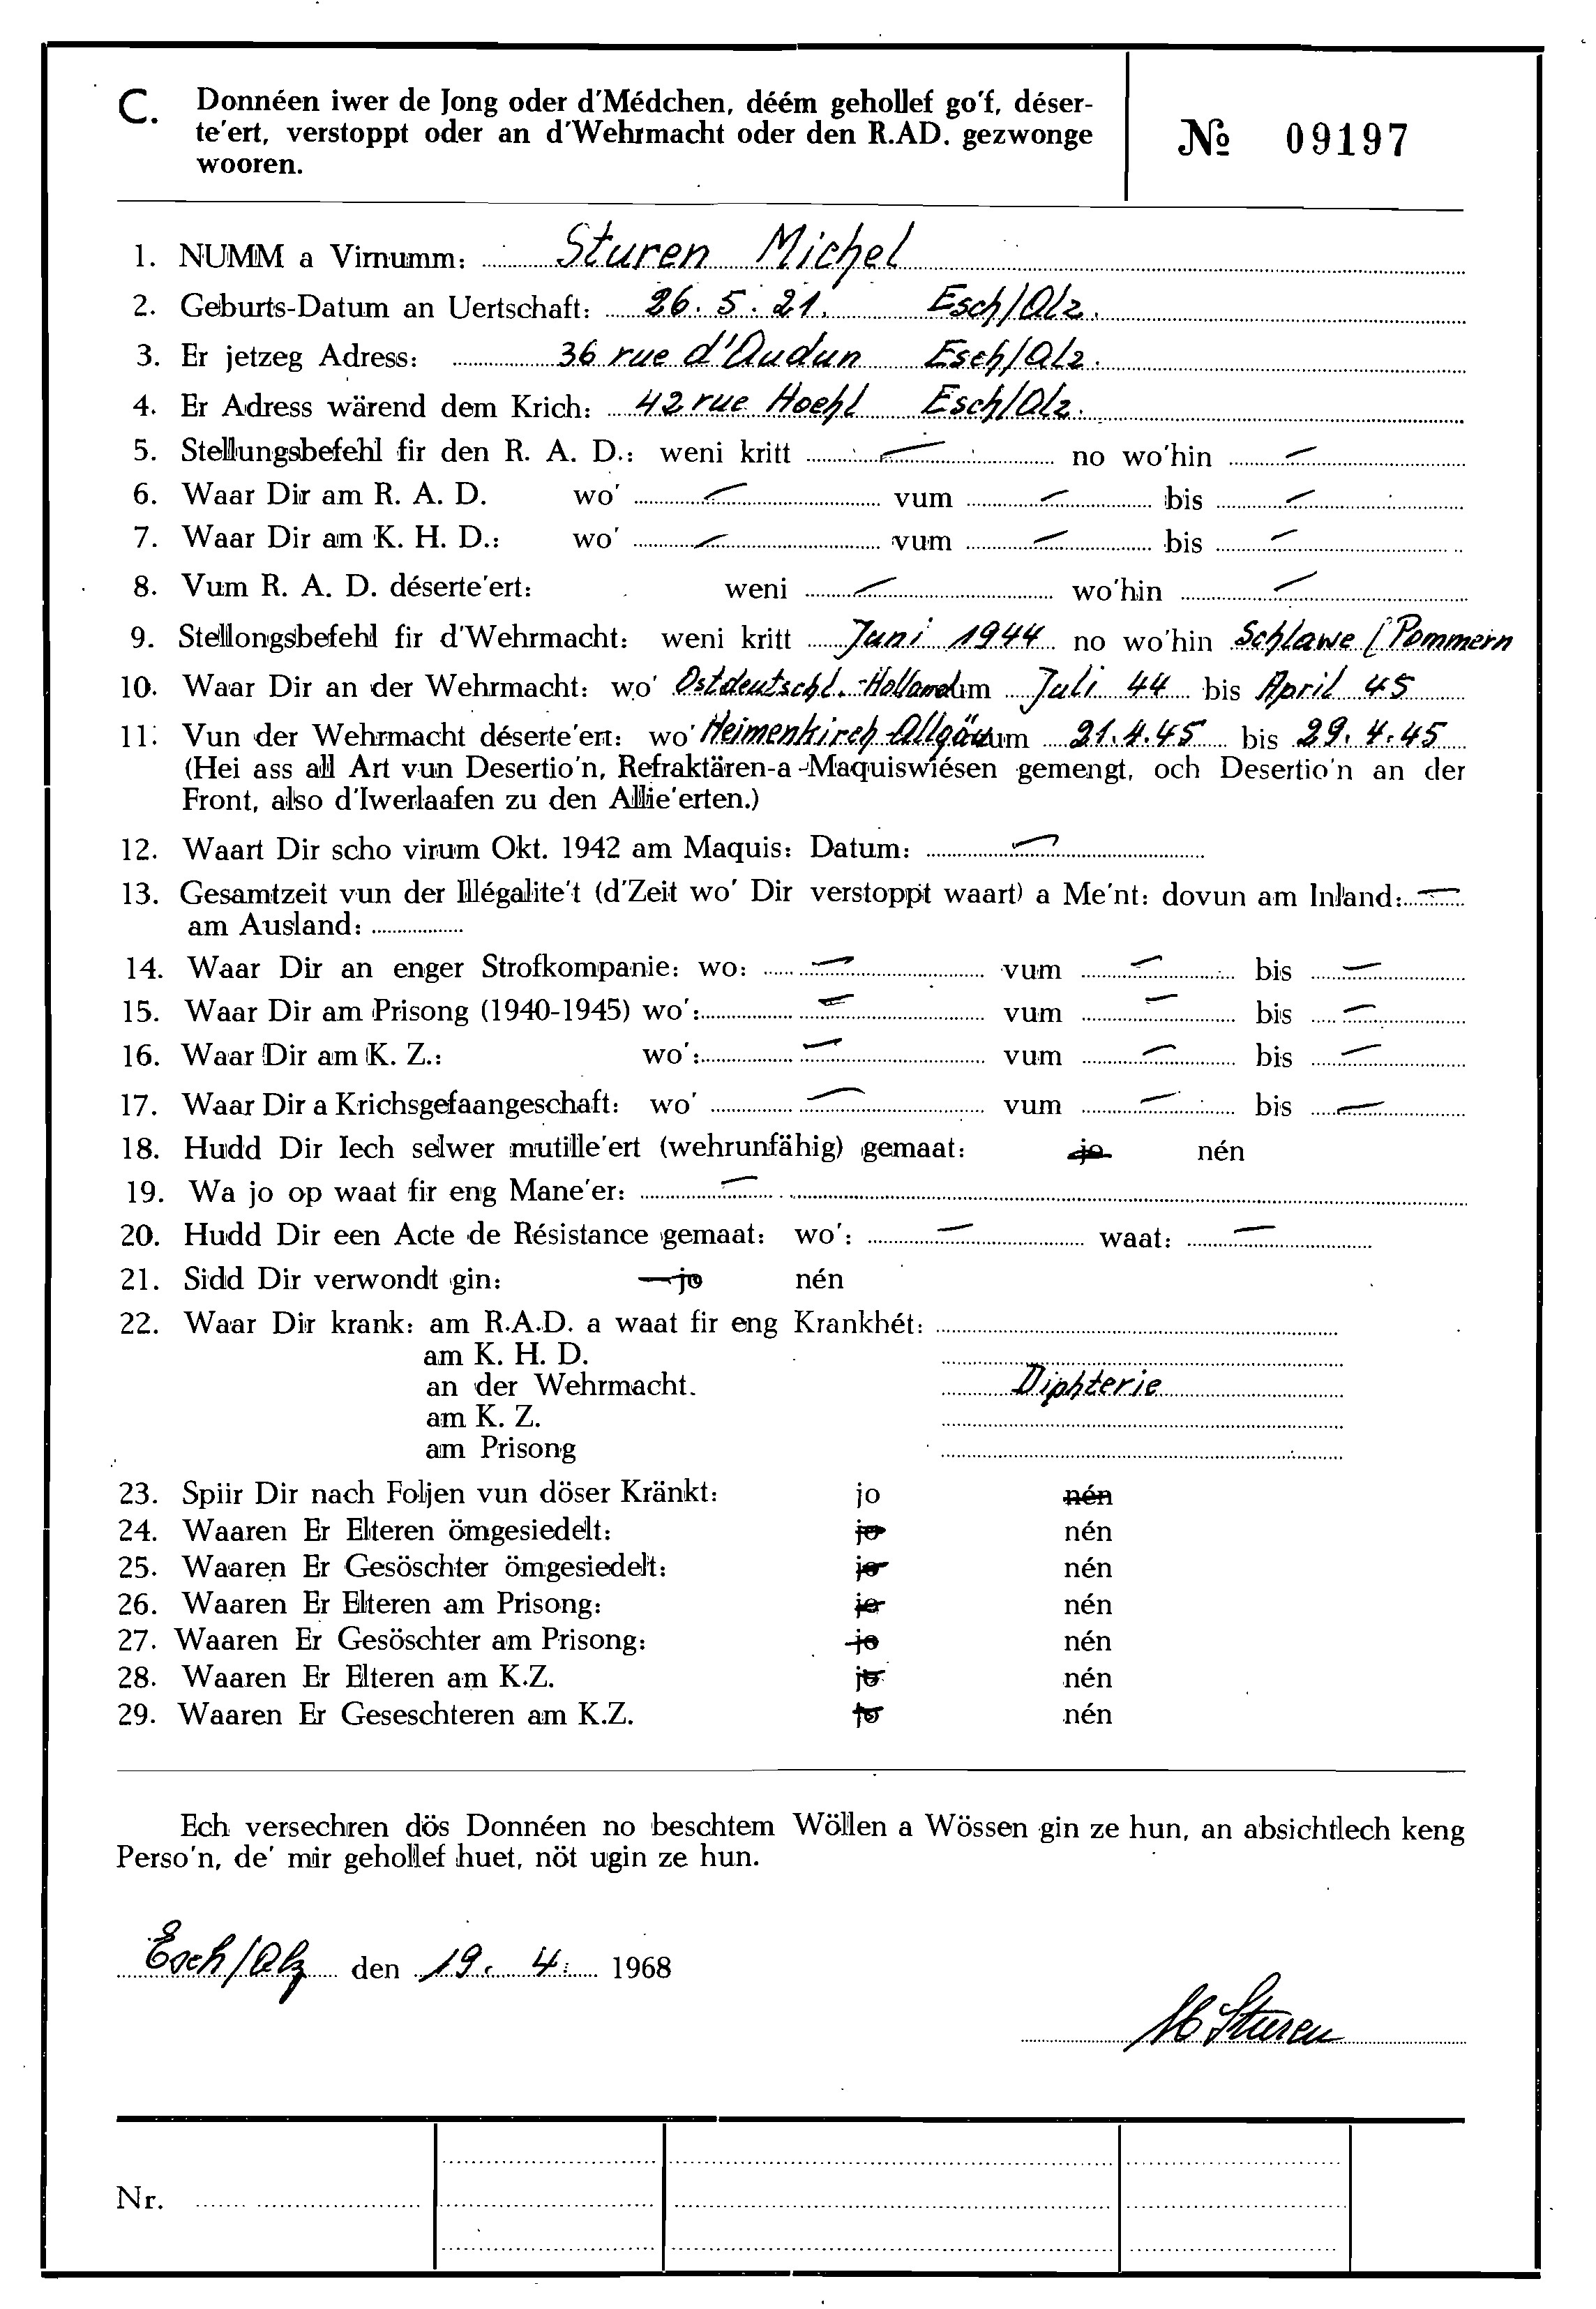 C. Donnéen iwer de Jong oder d'Médchen, déém gehollef go'f, déser-
te'ert, verstoppt oder an d'Wehrmacht oder den R.AD. gezwonge
wooren.
№ 09197
1. NUMM a Virnumm: Sturen Michel
2. Geburts-Datum an Uertschaft: 26. 5. 21. Esch/Alz.
3. Er jetzeg Adress: 36 rue d'Audun Esch/Alz.
4. Er Adress wärend dem Krich: 42 rue Hoehl Esch/Alz.
5. Stellungsbefehl fir den R. A. D.: weni kritt — no wo'hin —
6. Waar Dir am R. A. D. wo' — vum — bis —
7. Waar Dir am K. H. D.: wo' — vum — bis —
8. Vum R. A. D. déserte'ert: weni — wo'hin —
9. Stellongsbefehl fir d'Wehrmacht: weni kritt Juni 1944 no wo'hin Schlawe (Pommern
10. Waar Dir an der Wehrmacht: wo' Ostdeutschl.-Holland um Juli 44 bis April 45
11. Vun der Wehrmacht déserte'ert: wo' Heimenkirch-Allgäu um 21.4.45 bis 29.4.45
(Hei ass all Art vun Desertio'n, Refraktären-a-Maquiswiésen gemengt, och Desertio'n an der
Front, also d'Iwerlaafen zu den Allie'erten.)
12. Waart Dir scho virum Okt. 1942 am Maquis: Datum: —
13. Gesamtzeit vun der Illégalite't (d'Zeit wo' Dir verstoppt waart) a Me'nt: dovun am Inland: —
am Ausland:
14. Waar Dir an enger Strofkompanie: wo: — vum — bis —
15. Waar Dir am Prisong (1940-1945) wo': — vum — bis —
16. Waar Dir am K. Z.: wo': — vum — bis —
17. Waar Dir a Krichsgefaangeschaft: wo' — vum — bis —
18. Hudd Dir Iech selwer mutille'ert (wehrunfähig) gemaat: jo nén
19. Wa jo op waat fir eng Mane'er: —
20. Hudd Dir een Acte de Résistance gemaat: wo': — waat: —
21. Sidd Dir verwondt gin: jo nén
22. Waar Dir krank: am R.A.D. a waat fir eng Krankhét:
am K. H. D.
an der Wehrmacht. Diphterie
am K. Z.
am Prisong
23. Spiir Dir nach Foljen vun döser Kränkt: jo nén
24. Waaren Er Elteren ömgesiedelt: jo nén
25. Waaren Er Gesöschter ömgesiedelt: jo nén
26. Waaren Er Elteren am Prisong: jo nén
27. Waaren Er Gesöschter am Prisong: jo nén
28. Waaren Er Elteren am K.Z. jo nén
29. Waaren Er Geseschteren am K.Z. jo nén
Ech versechren dös Donnéen no beschtem Wöllen a Wössen gin ze hun, an absichtlech keng
Perso'n, de' mir gehollef huet, nöt ugin ze hun.
Esch/Alz den 19. 4. 1968
M Sturen
Nr.